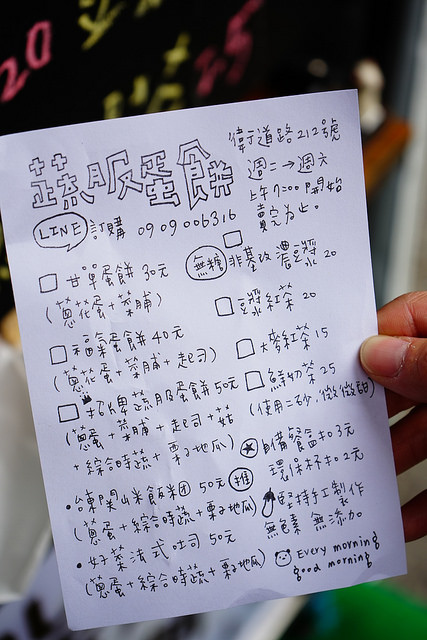 20
蔬服蛋餅
偉道路212號
週二→週六
上午7:00開始
賣完為止。
LINE 訂購 0909006316
甘單蛋餅 30元
(蔥花蛋+菜脯)
福氣蛋餅 40元
(蔥花蛋+菜脯+起司)
蔬服蛋餅 50元
(蔥蛋+菜脯+起司+菇
+綜合時蔬+栗子地瓜)
・台東關山米飯糰 50元 推
(蔥蛋+綜合時蔬+栗子地瓜)
・好菜法式吐司 50元
(蔥蛋+綜合時蔬+栗子地瓜)
無糖 非基改濃豆漿 20
豆漿紅茶 20
大麥紅茶 15
鮮奶茶 25
(使用二砂,微微甜)
自備餐盒扣3元
環保杯扣2元
堅持手工製作
無色素 無添加
Every morning
good morning